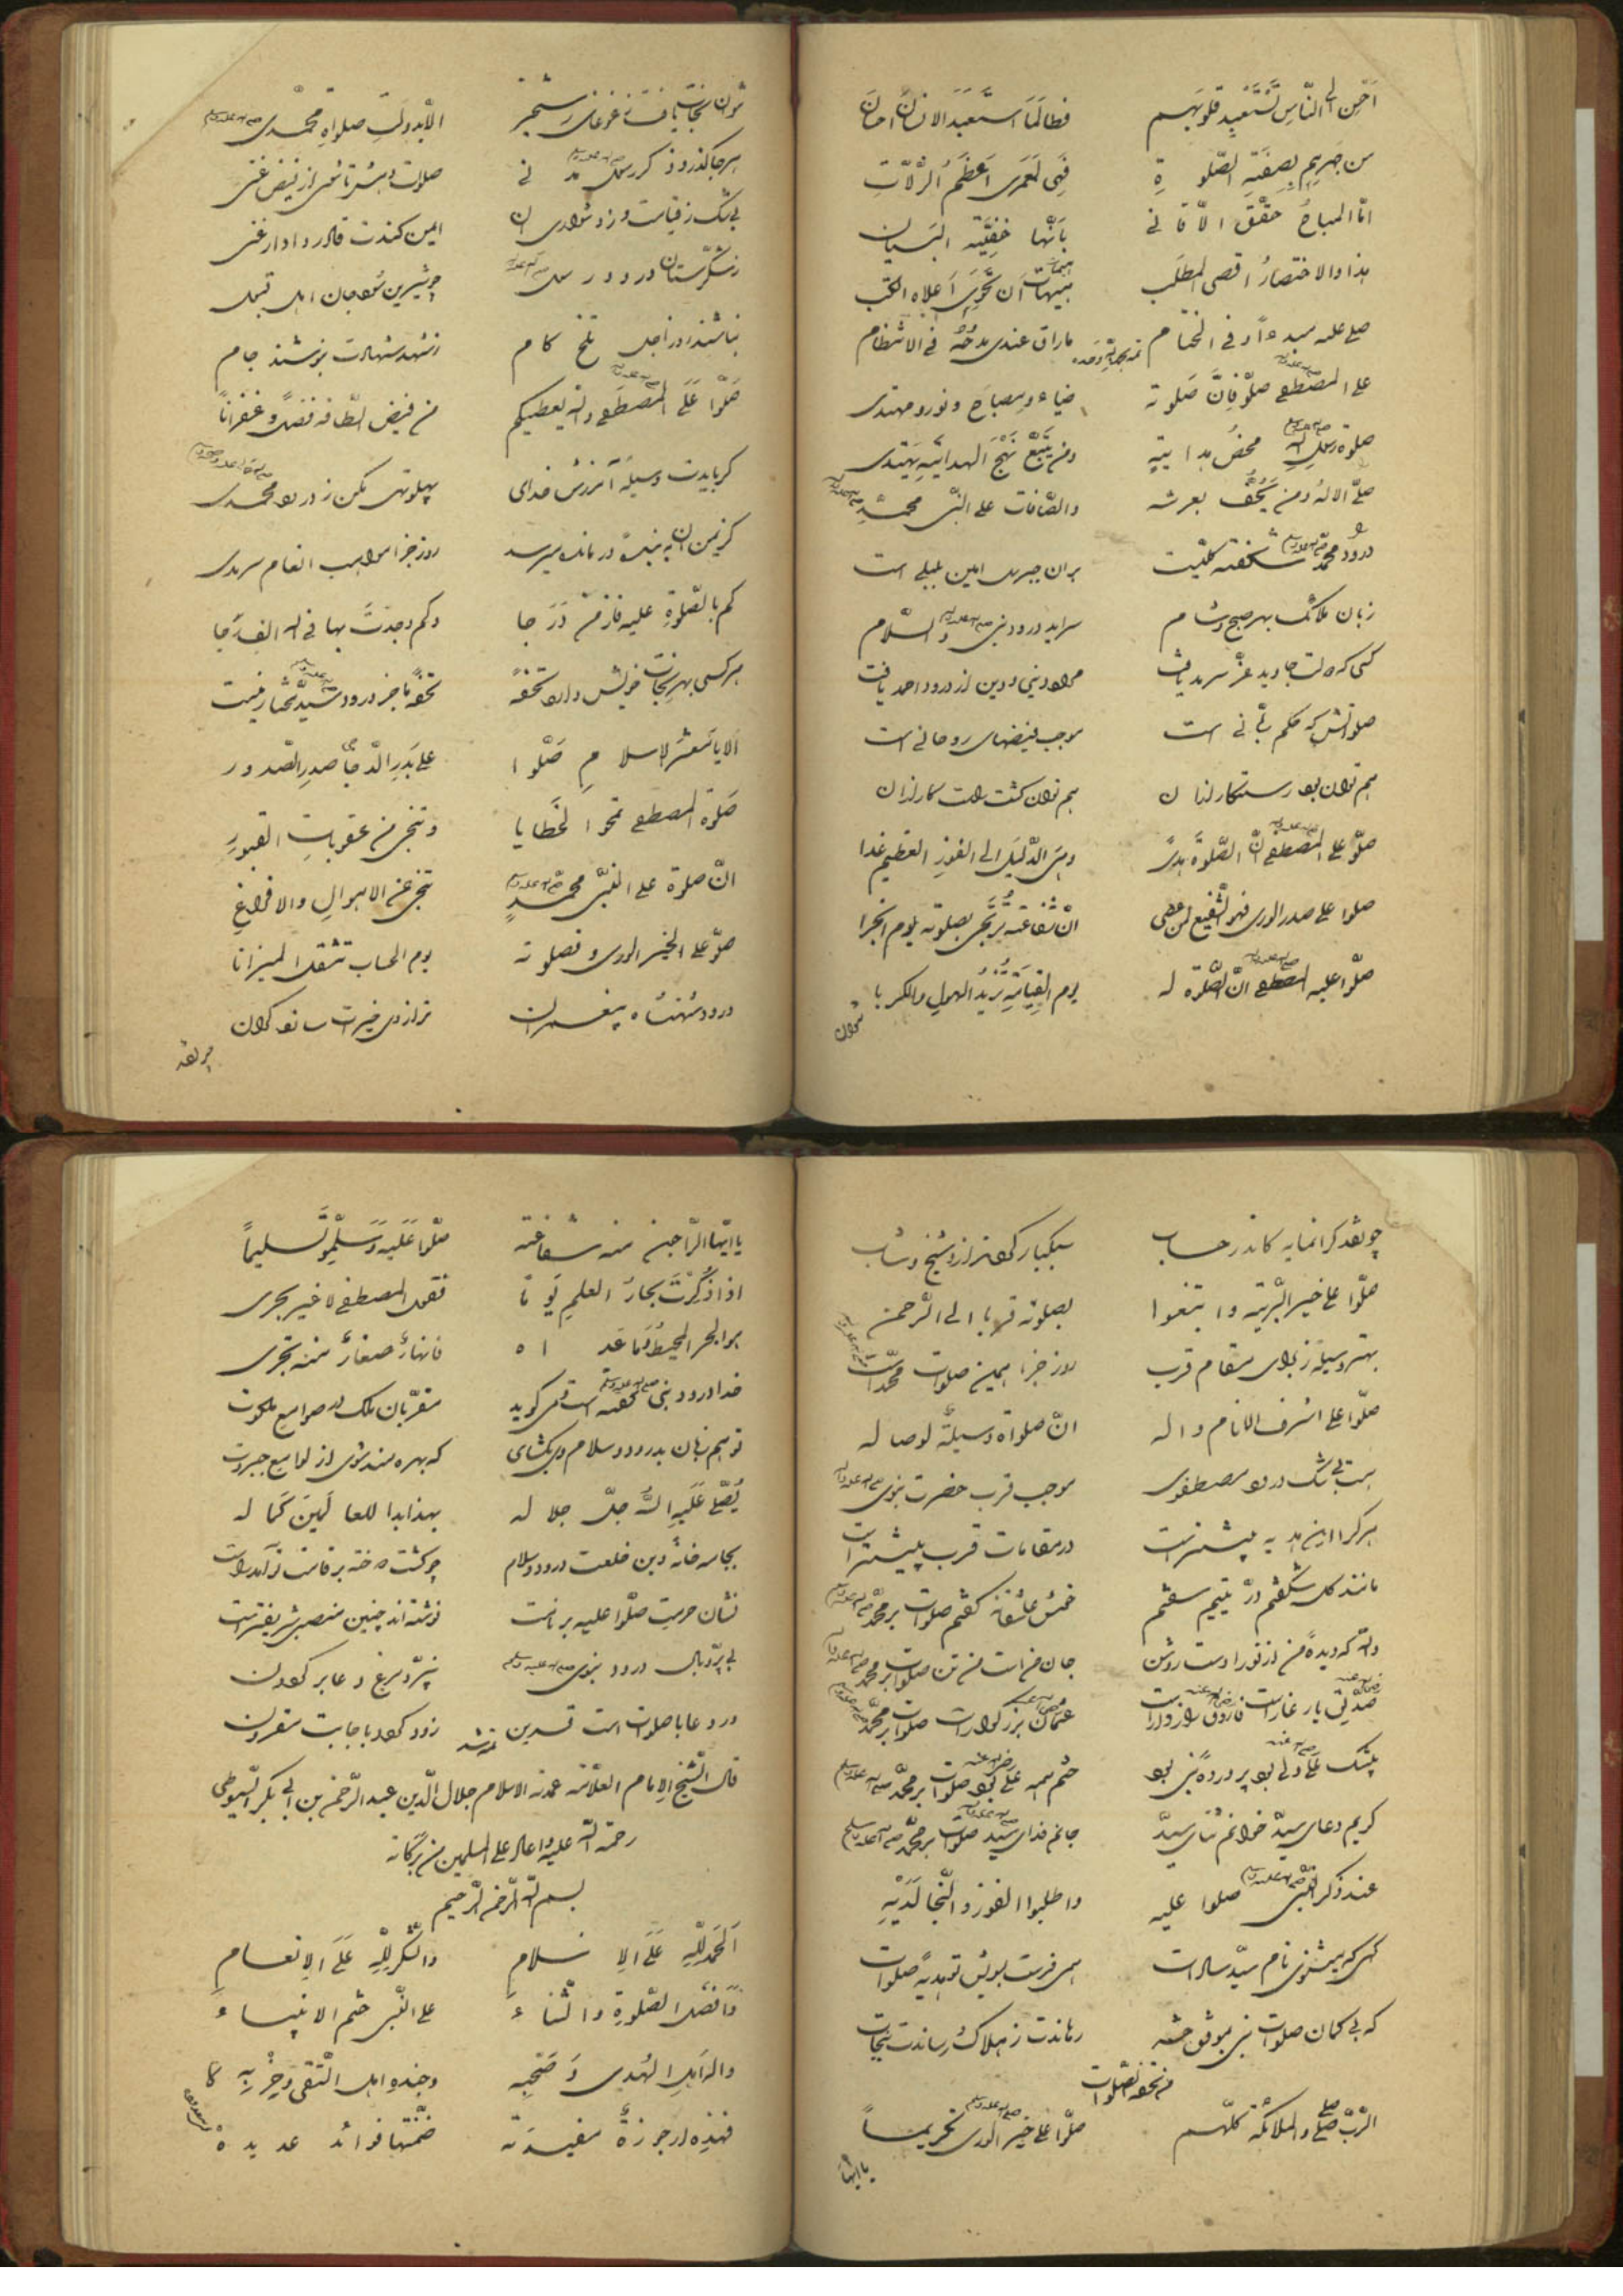 احسن الی النّاس تستعبد قلوبهم فطالما استعبد الانسان احسان
من صریم بصفة الصّلوة فهی لعمری اعظم الزّلات
امّا المباح حقّق الاتانی بانّها خفیّة
هذا والاختصار اقصی المطلب هیهات ان تحوی اعلاه الکتب
صلی علیه مبدءاً وفی الختام ماراق عندی مدحه فی الانتظام
علی المصطفی صلّوا فانّ صلوته ضیاء ومصباح ونور ومهتدی
صلوة رسول الله محض هدایة ومن یتّبع نهج الهدایة یهتدی
صلّی الاله ومن یحفّ بعرشه والصّافات علی النبی محمّد
درود محمّد شکفته گلیست بران جبریل امین بلبلی است
زبان ملائک بهر صبح وشام سراید درود نبی والسّلام
کسی که دولت جاوید عزّ سرمد یافت مراد دنیی ودین از درود احمد یافت
صلواتش که حکم ربّانی است موجب فیضهای روحانی است
هم توان بود رستکار ازان هم توان گشت راست کار ازان
صلّوا علی المصطفی انّ الصّلوة هدیً وهی الدّلیل الی الفوز العظیم غدا
صلوا علی صدر الوری فهو الشّفیع لمن عصی انّ شفاعته ترتجی بصلوته یوم الجزا
صلّوا علیه المصطفی انّ الصّلوة له یوم القیامة تزید الهول والکربا
توان نجات یافت ز غوغای رستخیز الّا بدولت صلوات محمّدی
صلوات ده بشر تا شوی از فیض غنی
بی شک ز قیامت ودزد شواری آن ایمن کندت قادر دادار غنی
ز شکرستان درود رسول چو شیرین شود جان اهل قبول
نباشند از اجل تلخ کام ز شهد شهادت بنوشند جام
صلّوا علی المصطفی والله یعطیکم من فیض الطافه فضلاً وغفراناً
گر بایدت وسیله آمرزش خدای پهلو تهی مکن ز درود محمدی
روز جزا مواهب انعام سرمدی
کم بالصّلوة علیه فاز من درجا وکم وجدت بها فی الله الفرجا
هر کسی بهر نجات خویش دارد تحفه تحفه ما جز درود سیّد مختار نیست
الا یا معشر الاسلام صلّوا علی بدر الدّجا صدر الصّدور
صلوة المصطفی تمحوا الخطایا وتنجی من عقوبات القبور
انّ صلوة علی النّبی محمّد تنجی عن الاهوال والافزاع
صلّوا علی الخیر الوری فصلوته یوم الحساب تثقل المیزانا
درود شهنشاه پیغمبران ترازوی خیرات سازد گران
چو نقد
چو نقد گرانمایه کاندر حساب سبکبار گردد ازو شیخ وشاب
صلّوا علی خیر البریّة وابتغوا بصلوته قربا الی الرّحمن
بهتر وسیله ز برای مقام قرب روز جزا همین صلوات محمّد است
صلّوا علی اشرف الانام واله انّ صلواة وسیلة لوصاله
هست بی شک درود مصطفوی موجب قرب حضرت نبوی
هر کرا این هدیه پیشتر است در مقامات قرب بیشتر است
مانند گل شکفتم درّ یتیم سفتم خوش عاشقانه گفتم صلوات بر محمّد
والله که دیده من از نور اوست روشن جان من است من تن صلوات بر محمد
صدّیق یار غار است فاروق راز دار است عثمان بزرگوار است صلوات بر محمّد
بیشک علی ولی بود پرورده نبی بود ختم همه علی بود صلوات بر محمّد
گویم دعای سیّد خوانم ثنای سیّد جانم فدای سیّد صلوات بر محمّد
عند ذکر النّبی صلوا علیه واطلبوا الفوز والنّجا لدیه
گهی که بشنوی نام سیّد سادات همی فرست بسویش تو هدیه صلوات
که بی گمان صلوات نبی بموقف حشر رهاندت ز هلاک ورساندت بنجات
من تحفه الصلوات
الرّبّ صلّی والملائکة کلّهم صلّوا علی خیر الوری تکریماً
یا ایها
یا ایّها الرّاجین منه شفاعته صلّوا علیه وسلّموا تسلیماً
اذا ذکرت بحار العلم یوما فقول المصطفی لا غیر یجری
هو البحر المحیط وما عداه فانهار صغار منه تجری
خدا درود نبی گفته است قدسی گوید مقرّبان ملک در صوامع ملکوت
تو هم زبان بدرود وسلام او بگشای که بهره مند شوی از لوامع جبروت
یصلّی علیه الله جلّ جلاله بهذا بدا للعالمین کماله
بجامه خانه دین خلعت درود وسلام چو گشت دوخته بر قامت تو آمد راست
نشان حرمت صلّوا علیه بر نامت نوشته اند چنین منصب شریف تراست
بی پر وبال درود نبوی نپرد مرغ دعا بر گردون
ور دعا با صلوات است قرین زود گردد باجابت مقرون
قال الشّیخ الامام العلّامة عمدة الاسلام جلال الدّین عبد الرّحمن بن ابی بکر السّیوطی
رحمة الله علیه واعاد علی المسلمین من برکاته
بسم الله الرّحمن الرّحیم
الحمد لله علی الاسلام والشّکر لله علی الانعام
وافضل الصّلوة والثّناء علی النّبی ختم الانبیاء
واله اهل الهدی وصحبه وجنده اهل التّقی وحزبه
فهذه ارجوزة مفیدة ضمّنتها فوائد عدیدة